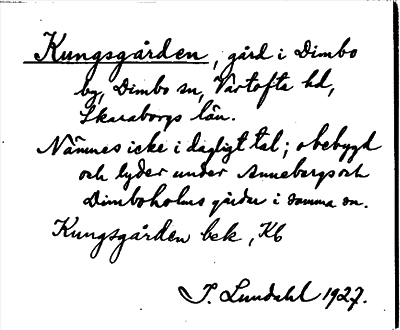 Kungsgården, gård i Dimbo
by, Dimbo sn, Vartofta hd,
Skaraborgs län.
Nämnes icke i dagligt tal; obebygd
och lyder under Annebergs och
Dimboholms gårdar i samma sn.
Kungsgården bek, Kb
I. Lundahl 1927.